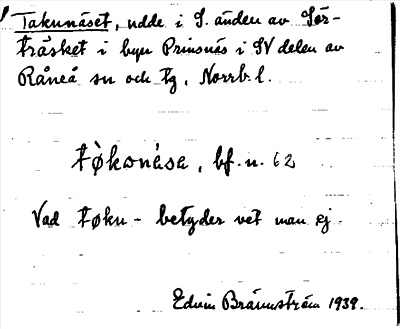 Takunäset, udde i S. änden av Sör-
träsket i byn Prinsnäs i SV delen av
Råneå sn och tg, Norrb. l.
tø̀konása, bf. n. 62
Vad tøku- betyder vet man ej.
Edvin Brännström 1939.